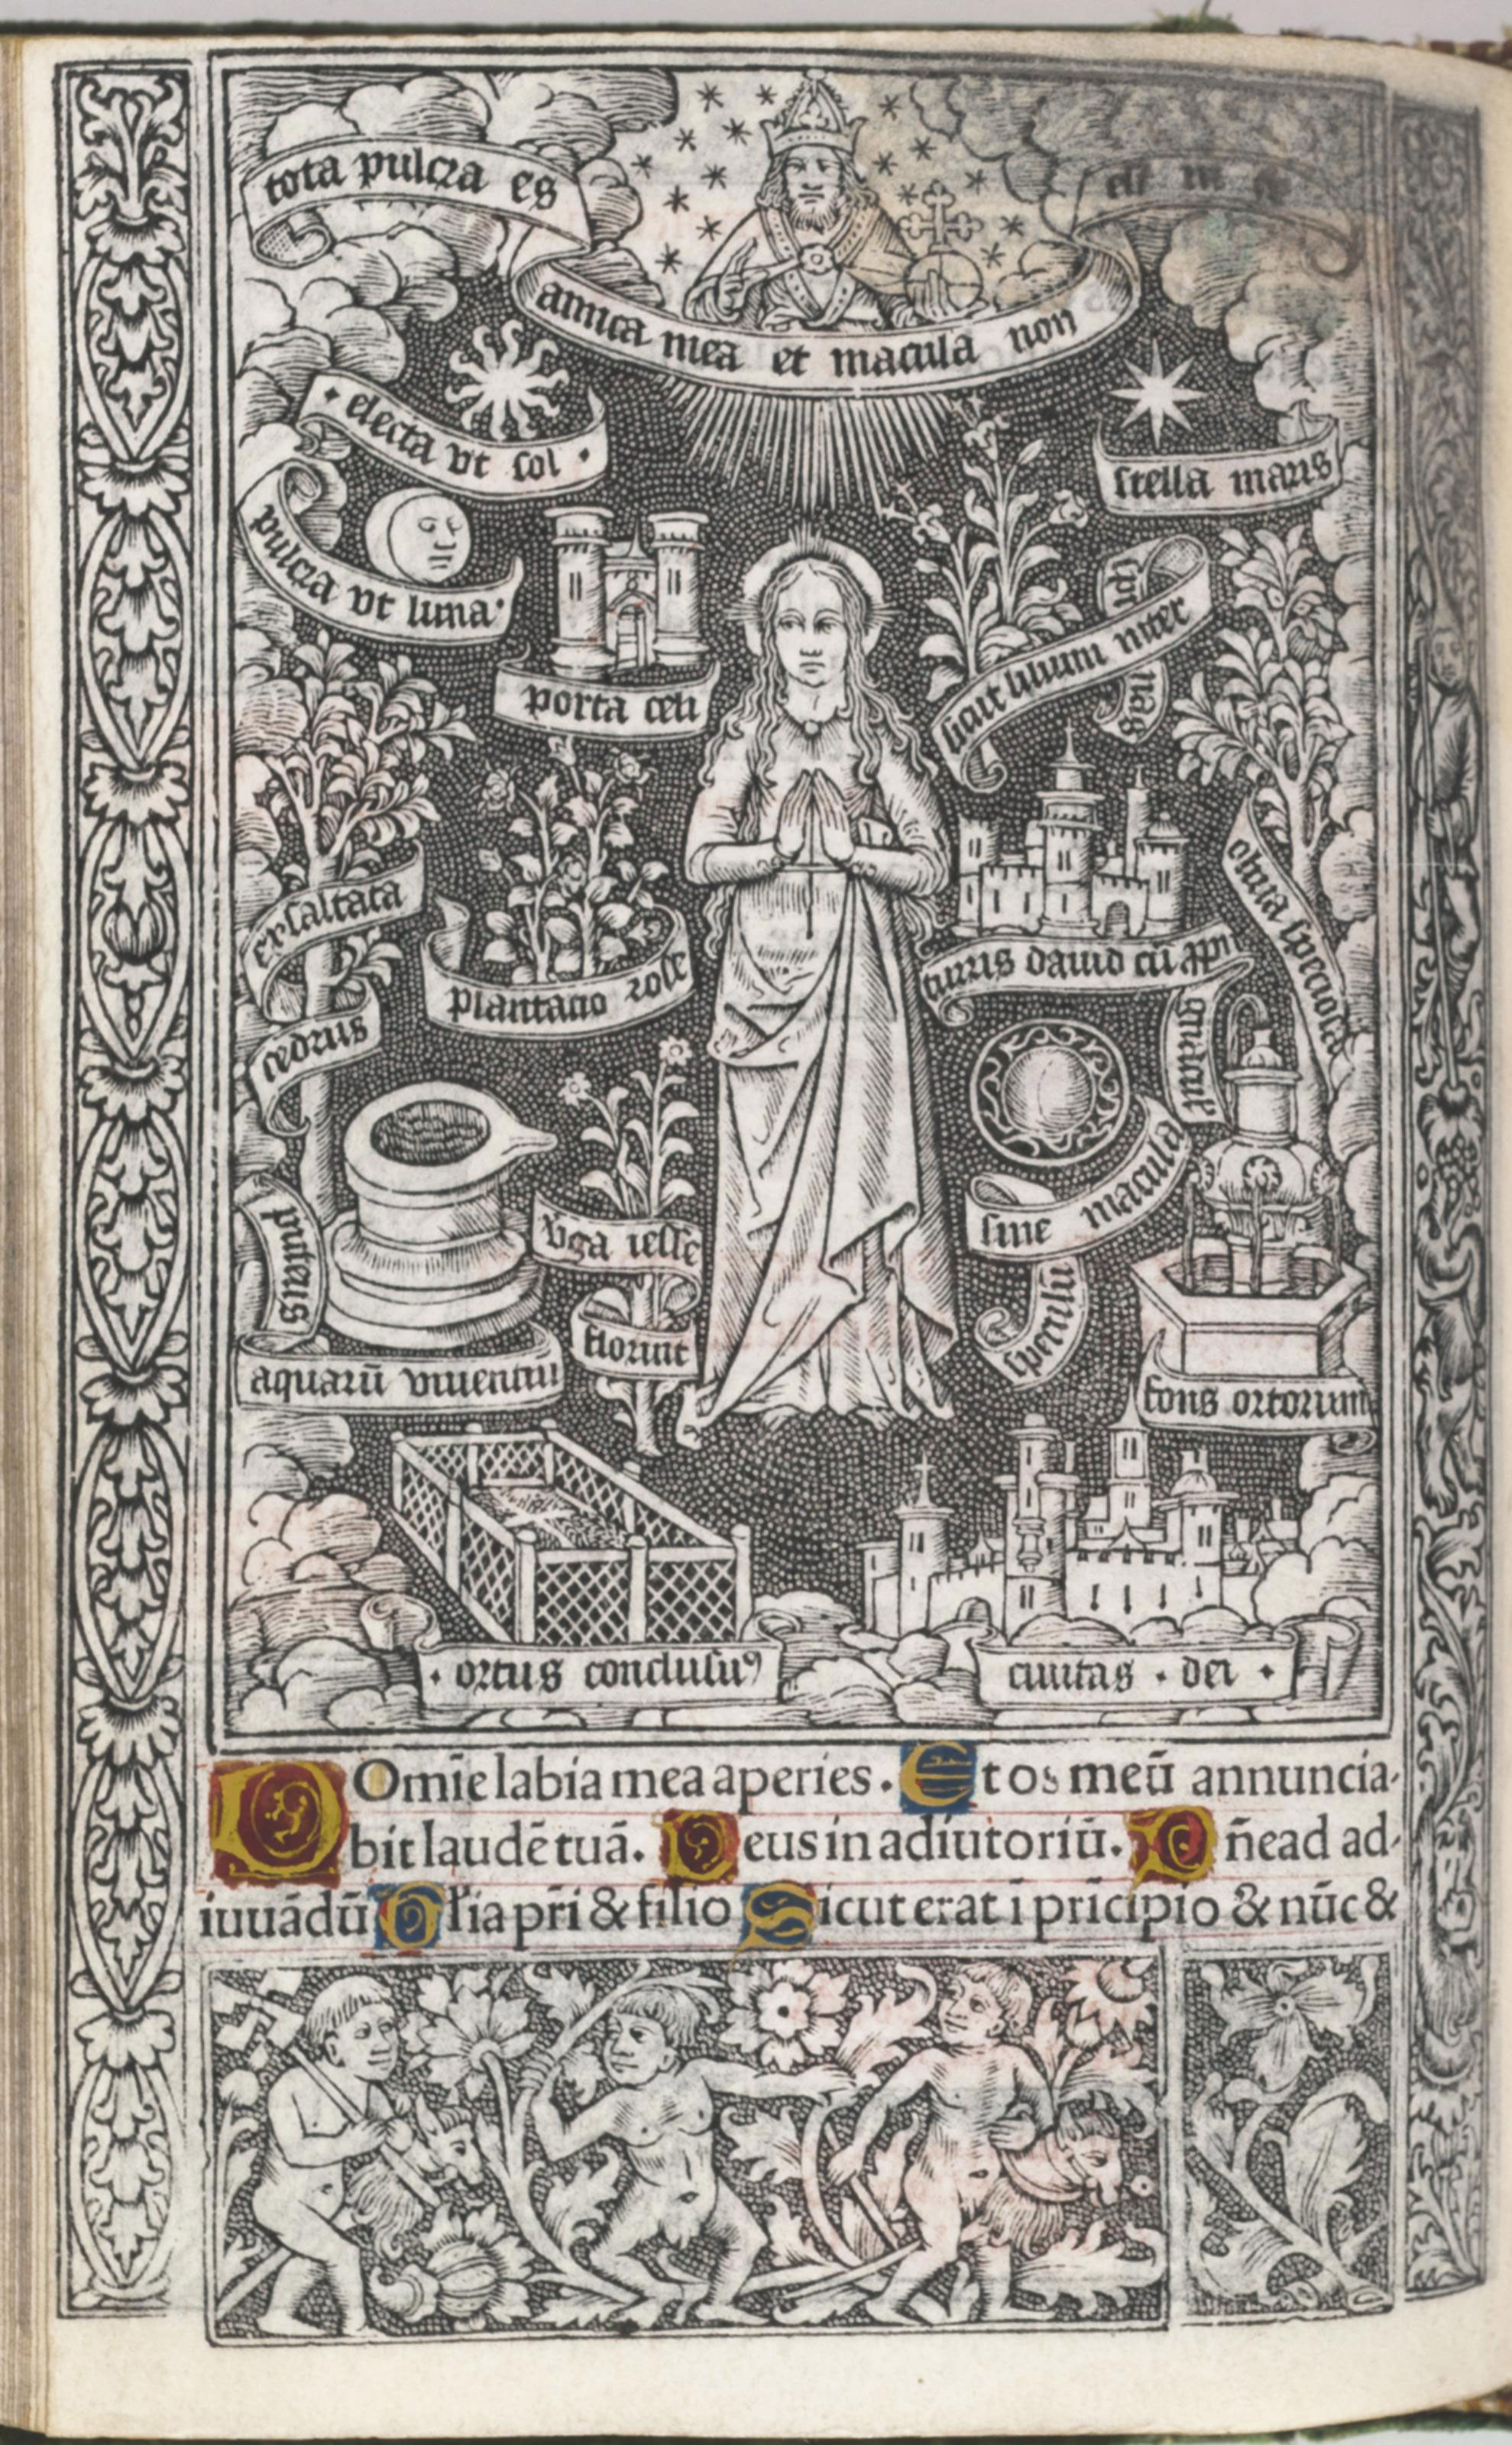 tota pulcra es
amica mea et macula non
est in te
electa vt sol
stella maris
pulcra vt luna
porta celi
sicut lilium inter
spi
nas
exsaltata
cedrus
plantacio rose
turris dauid cū ꝓpu
gnaculis
oliua speciosa
sine macula
speculū
puteus
aquarū viuentiū
v̄ga iesse
floruit
fons ortorum
ortus conclusuꝰ
ciuitas · dei
DOmīe labia mea aperies. Et os meū annuncia-
bit laudē tuā. Deus in adiutoriū. Dñe ad ad-
iuuādū Glīa pr̄i & filio Sicut erat ī pricīpio & nūc &